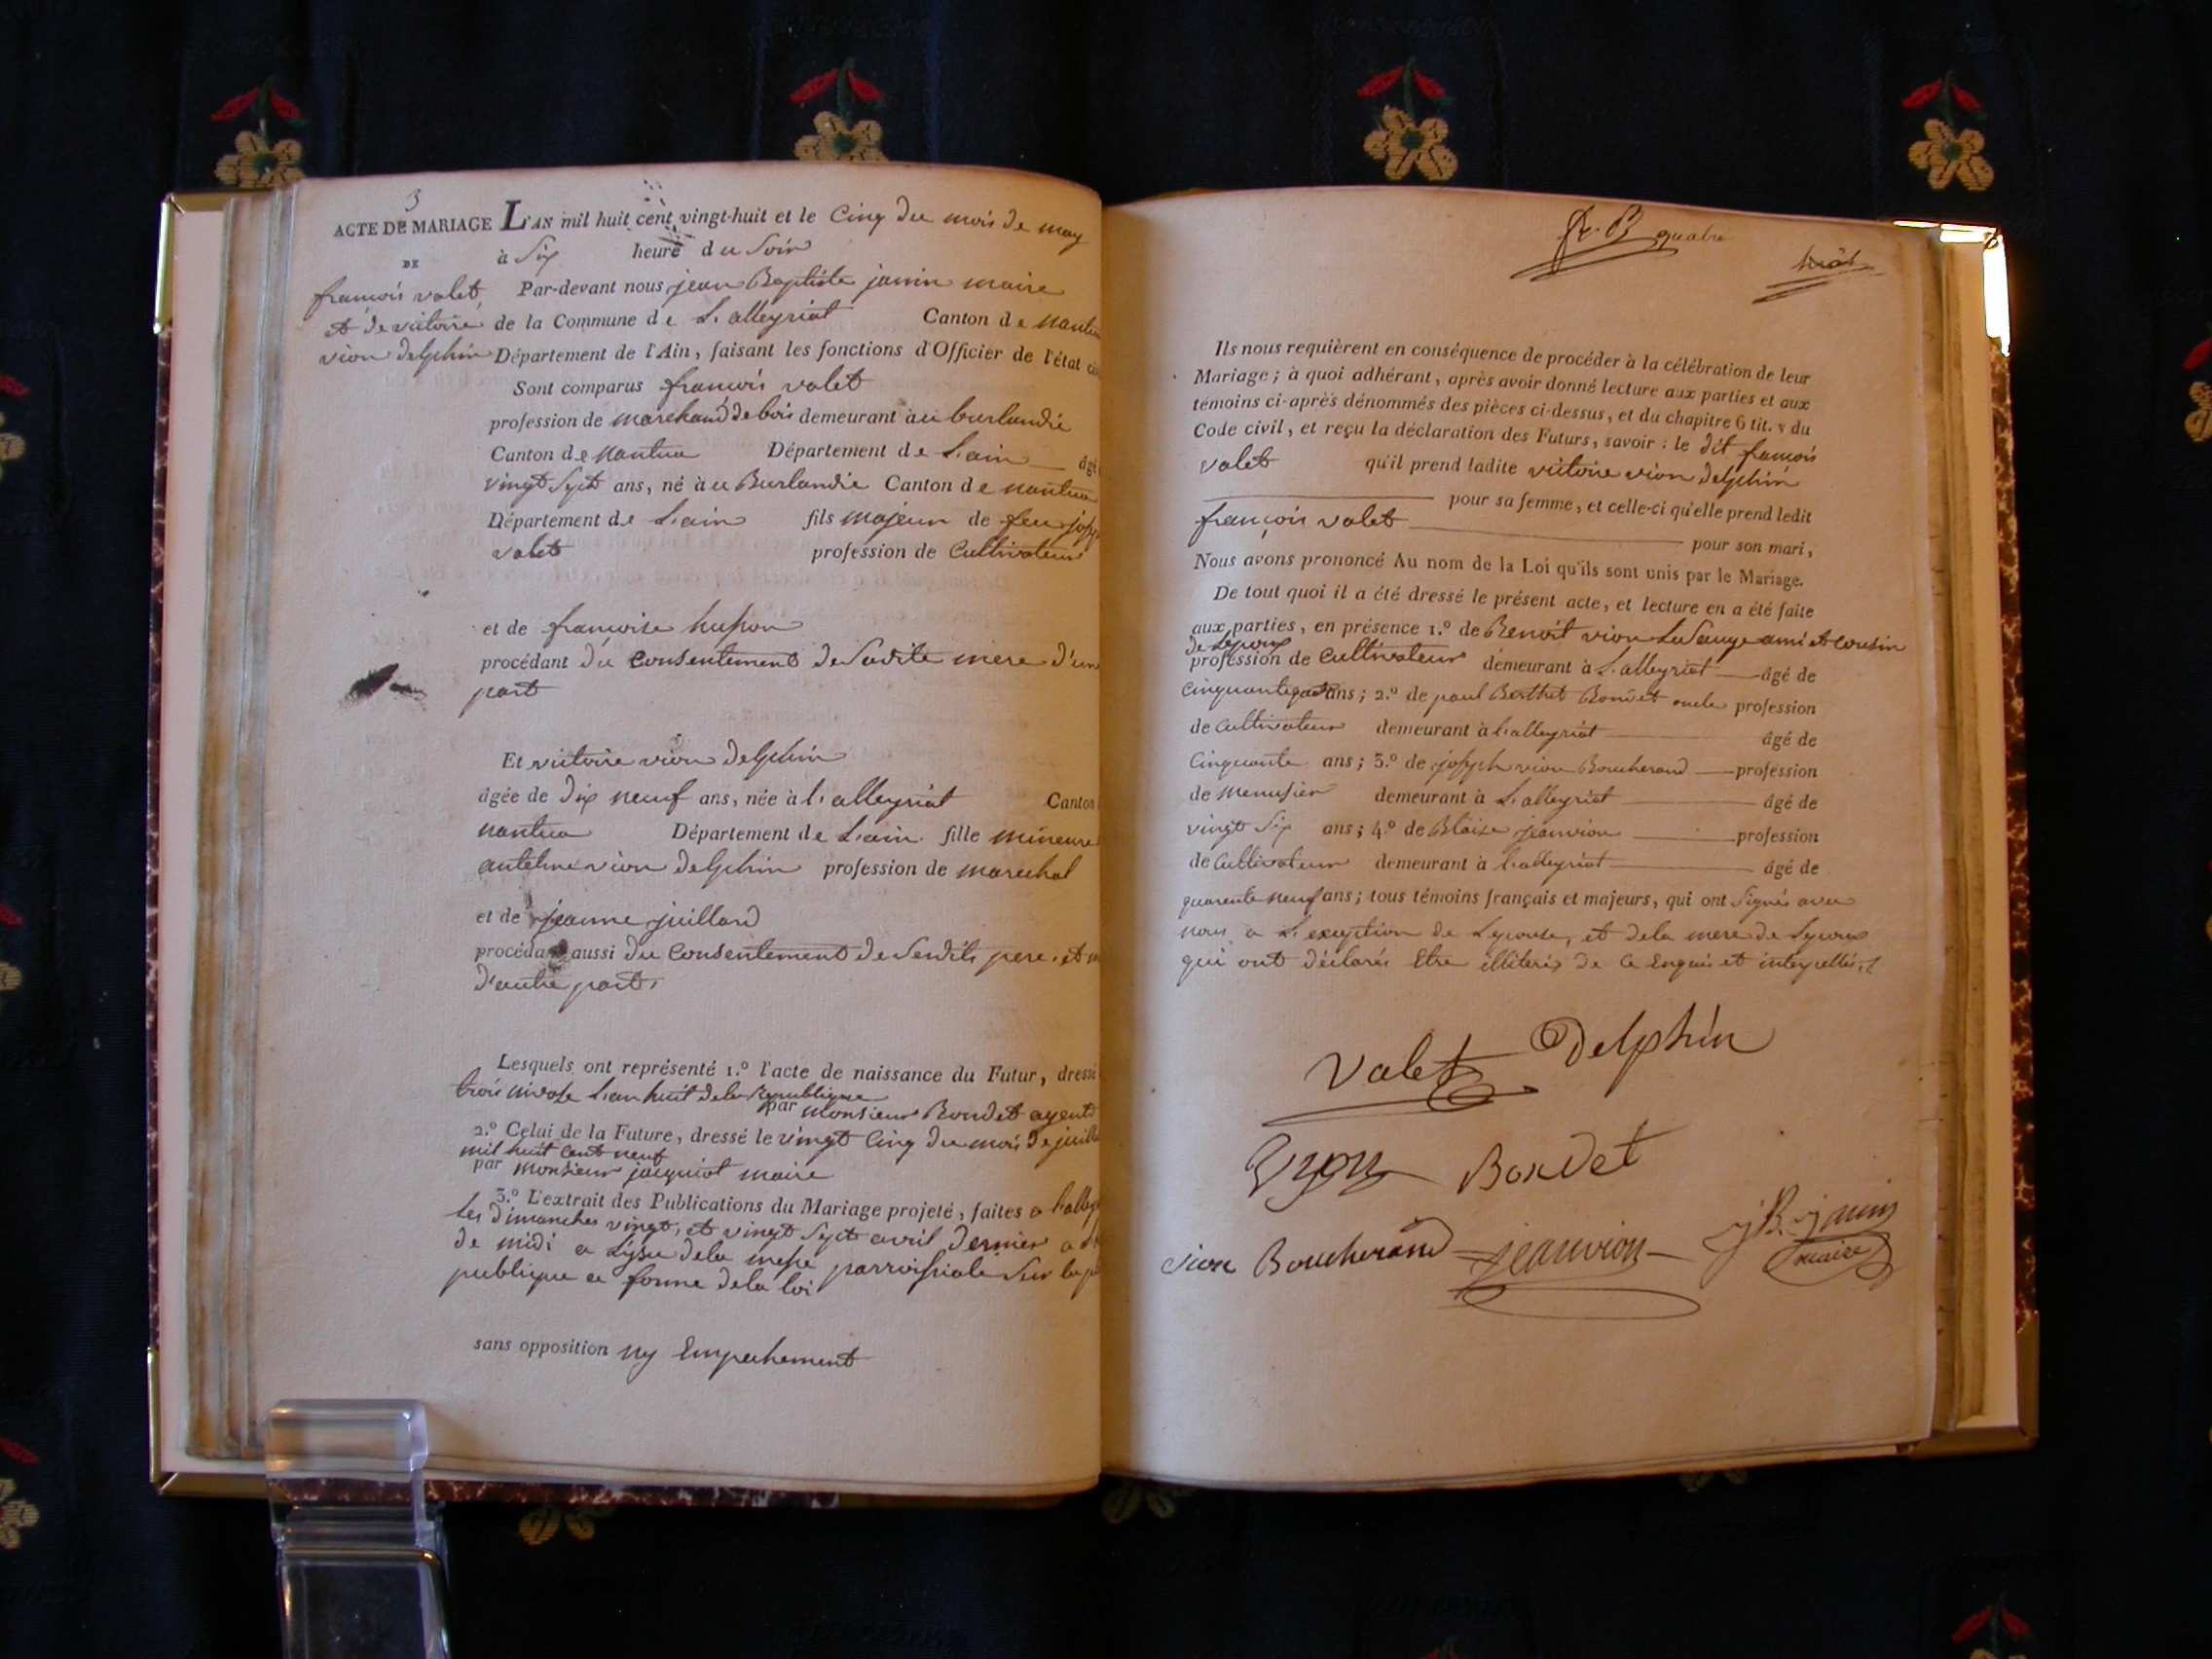 3
ACTE DE MARIAGE
DE
françois valet
et de victoire
vion delphin
L'AN mil huit cent vingt-huit et le Cinq du mois de may
à Six heure du Soir
Par-devant nous jean Baptiste janin maire
de la Commune de L'alleyriat Canton de Nantua
Département de l'Ain, faisant les fonctions d'Officier de l'état
Sont comparus françois valet
profession de marchand de bois demeurant au burlandié
Canton de Nantua Département de L'ain âgé
vingt Sept ans, né à u Burlandié Canton de nantua
Département de L'ain fils majeur de feu
valet profession de Cultivateur
et de françoise husson
procédant du Consentement de Sadite mere d'un
part
Et victoire vion delphin
âgée de dix neuf ans, née à l'alleyriat Canton
nantua Département de L'ain fille mineure
antelme vion delphin profession de marechal
et de jeanne juillard
procédant aussi du Consentement de Sesdits pere, et
d'autre part,
Lesquels ont représenté 1.º l'acte de naissance du Futur, dressé
trois nivose L'an huit de la Republique
par Monsieur Boudet agent
2.º Celui de la Future, dressé le vingt Cinq du mois de
mil huit Cent neuf
par monsieur jacquiot maire
3.º L'extrait des Publications du Mariage projeté, faites a
les dimanches vingt, et vingt Sept avril dernier
de midi a L'issue de la messe parroissiale Sur la
publique a forme de la loi
sans opposition ny Empechement
quatre
Ils nous requièrent en conséquence de procéder à la célébration de leur
Mariage; à quoi adhérant, après avoir donné lecture aux parties et aux
témoins ci-après dénommés des pièces ci-dessus, et du chapitre 6 tit. v du
Code civil, et reçu la déclaration des Futurs, savoir : le dit françois
valet qu'il prend ladite victoire vion delphin
pour sa femme, et celle-ci qu'elle prend ledit
françois valet pour son mari,
Nous avons prononcé Au nom de la Loi qu'ils sont unis par le Mariage.
De tout quoi il a été dressé le présent acte, et lecture en a été faite
aux parties, en présence 1.º de Benoit vion LaSauge ami et cousin
de L'epoux
profession de Cultivateur demeurant à L'alleyriat âgé de
Cinquante ans; 2.º de paul Berthet Bondet oncle profession
de Cultivateur demeurant à l'alleyriat âgé de
Cinquante ans; 3.º de joseph vion Boucherand profession
de menusier demeurant à L'alleyriat âgé de
vingt Six ans; 4.º de Blaise jeanvion profession
de Cultivateur demeurant à l'alleyriat âgé de
quarente neuf ans; tous témoins français et majeurs, qui ont Signés avec
nous a L'exception de L'epouse, et de la mere de L'epoux
qui ont déclarés Etre illiterés de Ce Enquis et interpellés
Valet Delphin
Vyon Bondet
vion Boucherand jeanvion jB. janin
maire